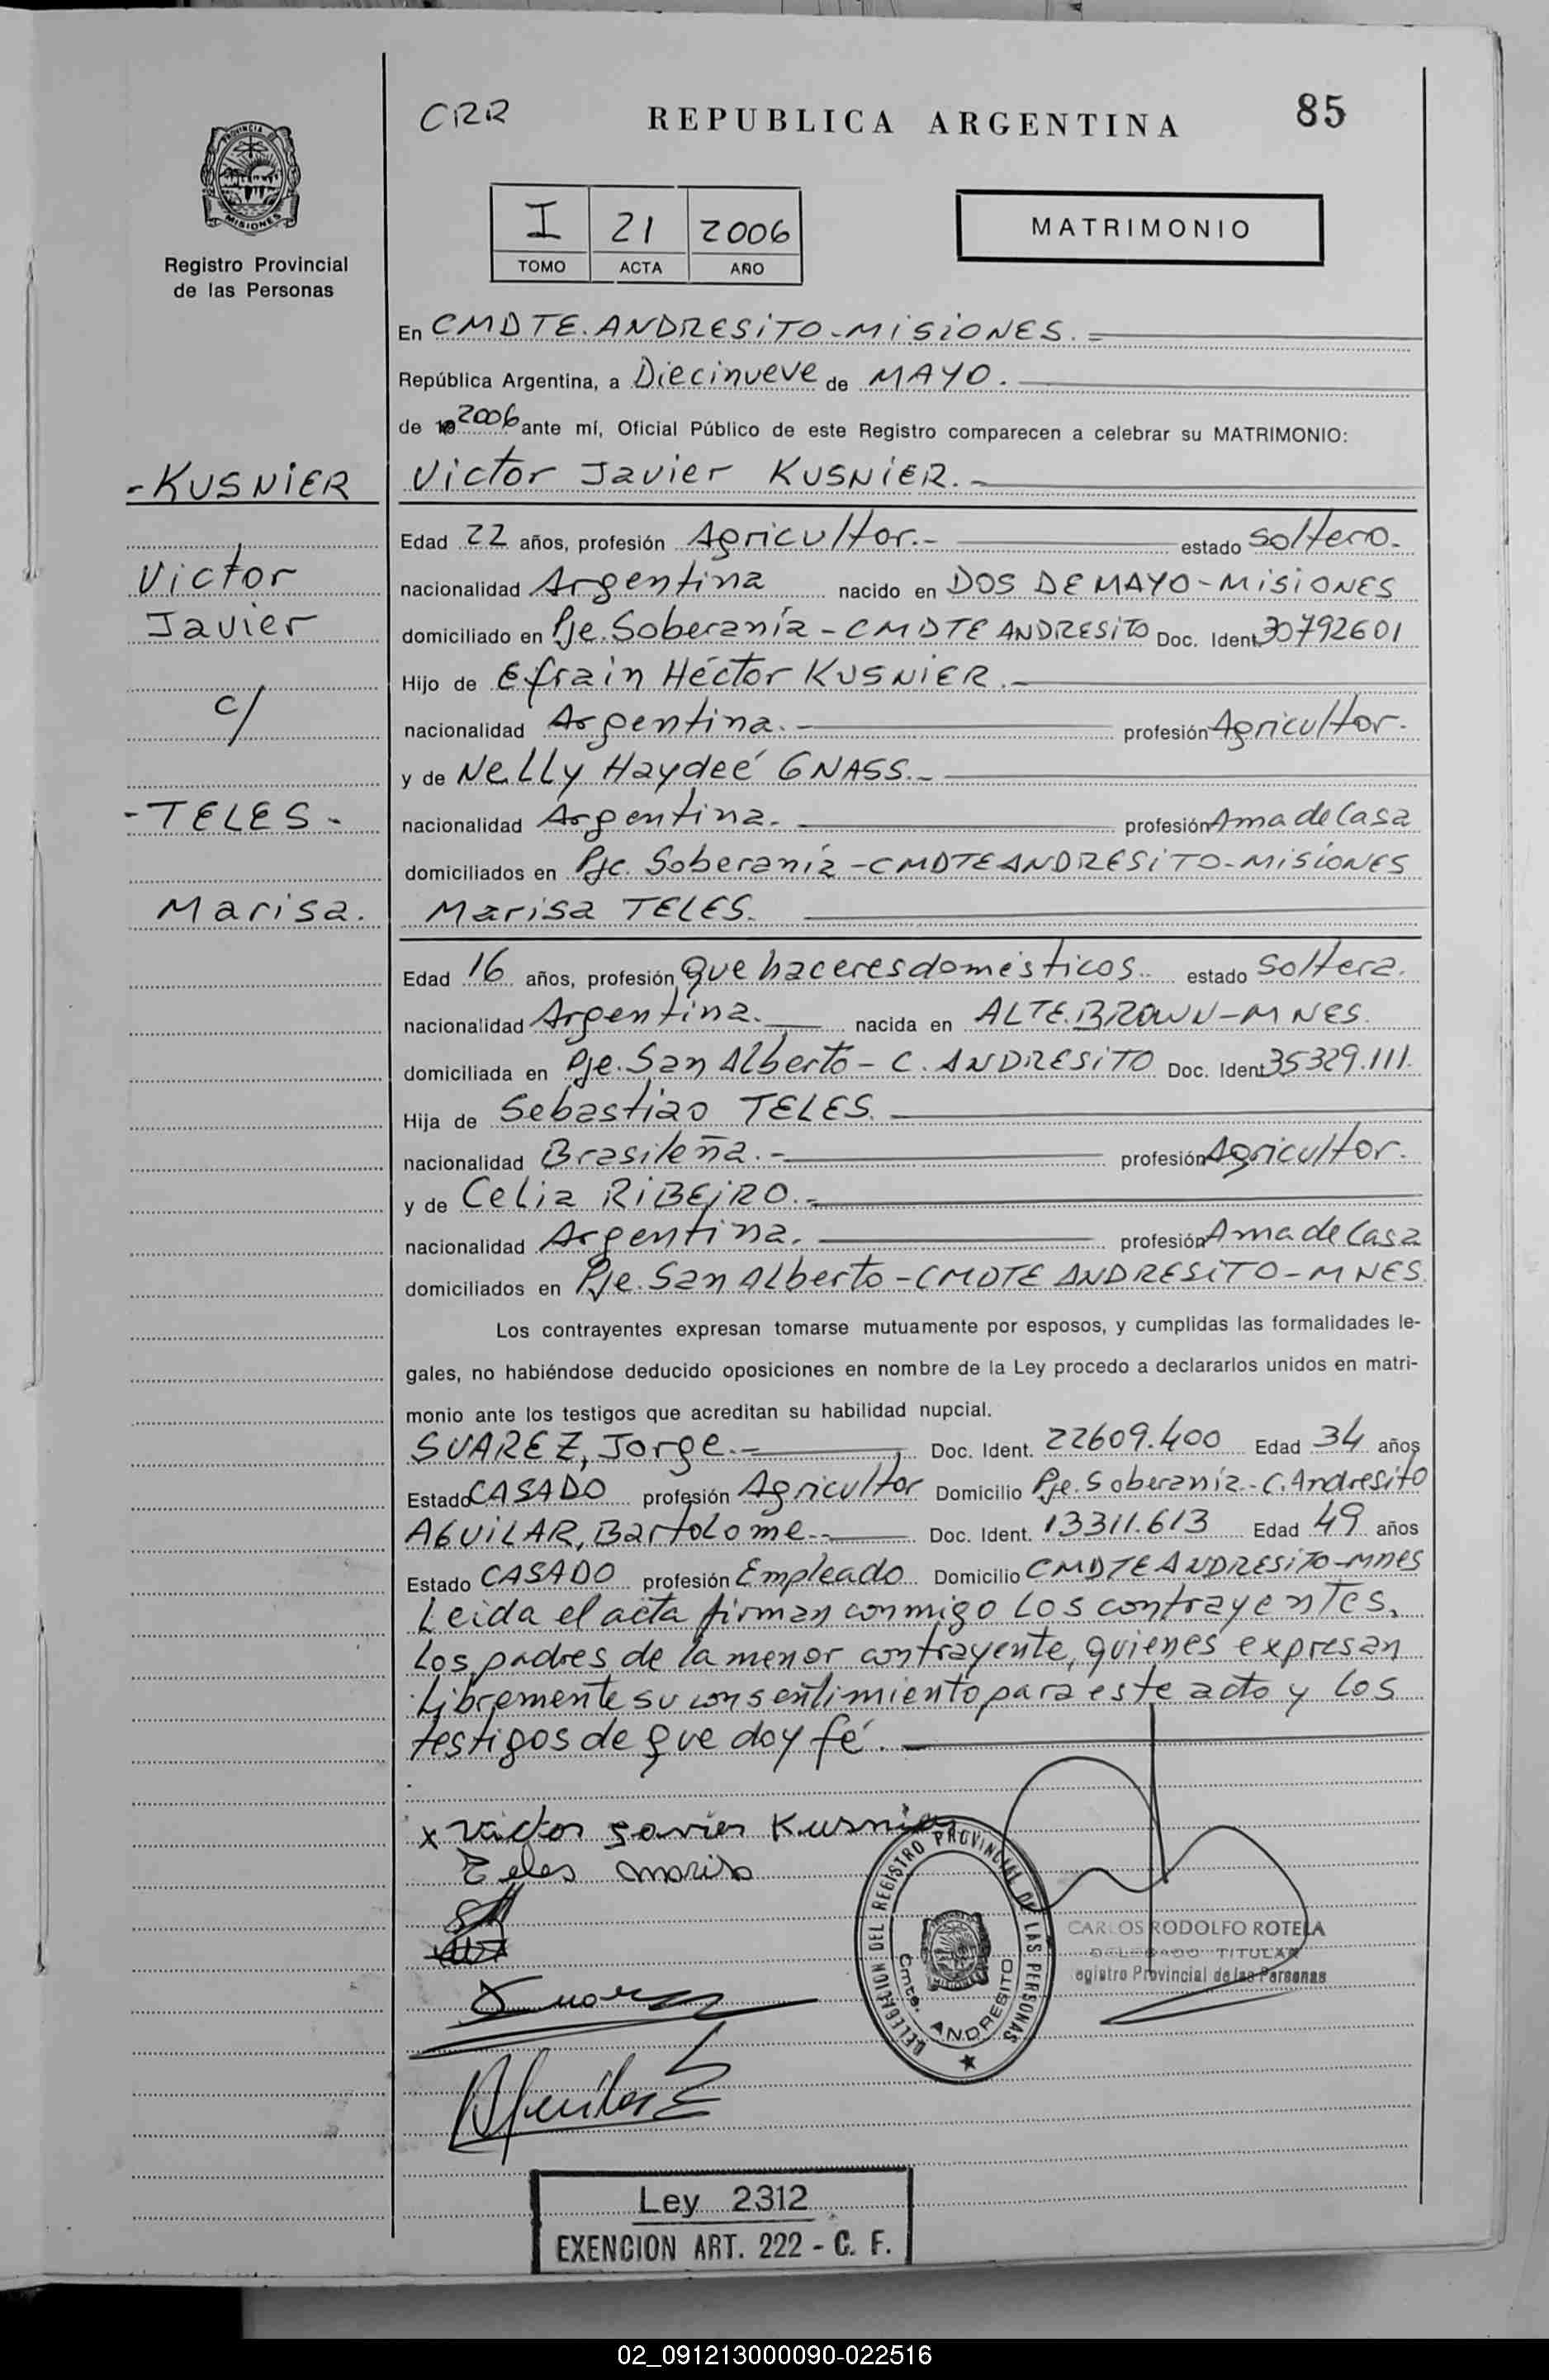 CRR
REPUBLICA ARGENTINA
85
PROVINCIA DE
MISIONES
Registro Provincial
de las Personas
I 21 2006
TOMO ACTA AÑO
MATRIMONIO
En CMDTE. ANDRESITO - MISIONES. =
República Argentina, a Diecinueve de MAYO.
de 19 2006 ante mí, Oficial Público de este Registro comparecen a celebrar su MATRIMONIO:
- KUSNIER
Victor Javier KUSNIER. -
Edad 22 años, profesión Agricultor.- estado soltero.
Victor
nacionalidad Argentina nacido en DOS DE MAYO - MISIONES
Javier
domiciliado en Pje. Soberanía - CMDTE ANDRESITO Doc. Ident. 30792601
Hijo de Efrain Héctor KUSNIER. -
c/
nacionalidad Argentina. - profesión Agricultor.
y de Nelly Haydeé GNASS. -
- TELES -
nacionalidad Argentina. profesión Ama de Casa
domiciliados en Pje. Soberanía - CMDTE ANDRESITO - MISIONES
Marisa.
Marisa TELES.
Edad 16 años, profesión que haceres domésticos.. estado Soltera.
nacionalidad Argentina. nacida en ALTE. BROWN - MNES.
domiciliada en Pje. San Alberto - C. ANDRESITO Doc. Ident. 35329.111.
Hija de Sebastiao TELES.
nacionalidad Brasileña. - profesión Agricultor.
y de Celia RIBEIRO. -
nacionalidad Argentina. profesión Ama de Casa
domiciliados en Pje. San Alberto - CMDTE ANDRESITO - MNES.
Los contrayentes expresan tomarse mutuamente por esposos, y cumplidas las formalidades le-
gales, no habiéndose deducido oposiciones en nombre de la Ley procedo a declararlos unidos en matri-
monio ante los testigos que acreditan su habilidad nupcial.
SUAREZ, Jorge. - Doc. Ident. 22609.400 Edad 34 años
Estado CASADO profesión Agricultor Domicilio Pje. Soberanía - C. Andresito
AGUILAR, Bartolome. - Doc. Ident. 13311.613 Edad 49 años
Estado CASADO profesión Empleado Domicilio CMDTE ANDRESITO - Mnes
Leida el acta firman conmigo los contrayentes,
los padres de la menor contrayente, quienes expresan
libremente su consentimiento para este acto y los
testigos de que doy fé.
x Victor Javier Kusnier
Teles Marisa
Suarez
Aguilar
DELEGACION DEL REGISTRO PROVINCIAL DE LAS PERSONAS
Cmte. ANDRESITO
CARLOS RODOLFO ROTELA
DELEGADO TITULAR
egistro Provincial de las Personas
Ley 2312
EXENCION ART. 222 - C. F.
02_091213000090-022516